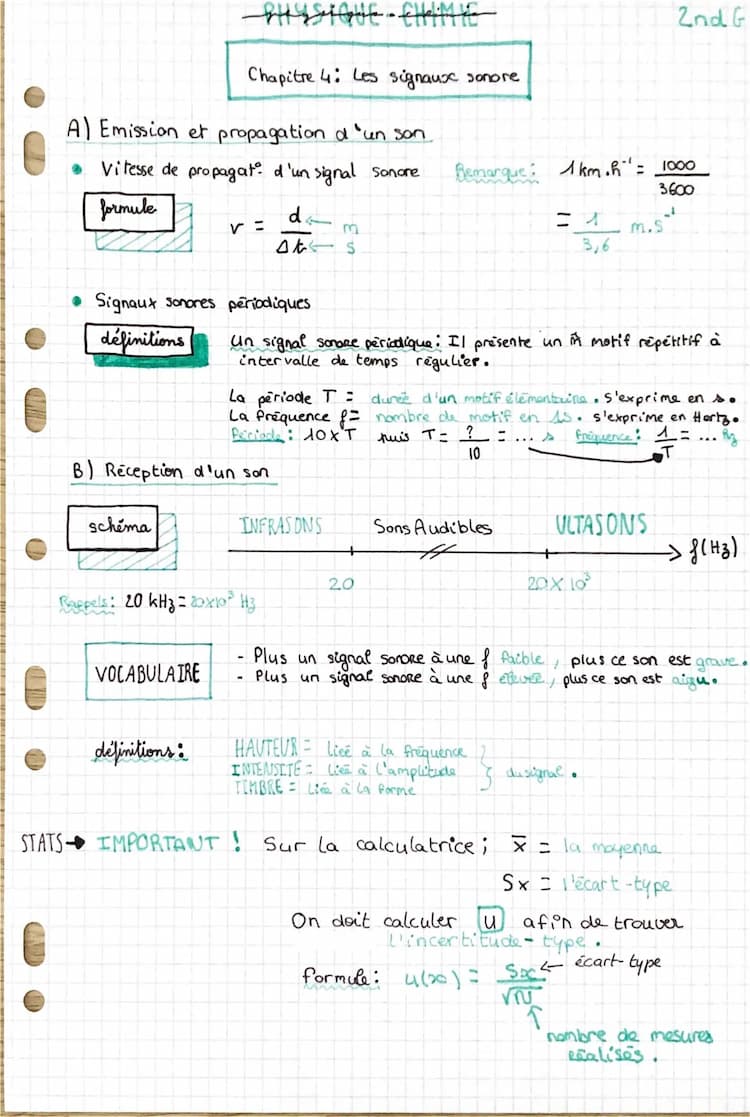 PHYSIQUE - CHIMIE
2nd G
Chapitre 4: Les signaux sonore
A) Emission et propagation d'un son
• Vitesse de propagat° d'un signal sonore
Remarque: 1 km.h⁻¹ = 1000/3600
= 1/3,6 m.s⁻¹
formule
v = d/Δt ← m ← s
• Signaux sonores périodiques
définitions
Un signal sonore périodique: Il présente un motif répétitif à
intervalle de temps régulier.
La période T = dureé d'un motif élémentaire. s'exprime en s.
La fréquence f= nombre de motif en 1s. s'exprime en Hertz.
Période: 10xT puis T= ?/10 = ... s Fréquence: 1/T = ... Hz
B) Réception d'un son
schéma
INFRASONS Sons Audibles ULTASONS
f(Hz)
20 20X10³
Rappels: 20 kHz = 20x10³ Hz
VOCABULAIRE
- Plus un signal sonore à une f faible, plus ce son est grave.
- Plus un signal sonore à une f élevée, plus ce son est aigu.
définitions:
HAUTEUR = lieé à la fréquence
INTENSITÉ = lieé à l'amplitude } du signal.
TIMBRE = Lieé à la forme
STATS→ IMPORTANT ! Sur la calculatrice; x̄ = la moyenne
Sx = l'écart-type
On doit calculer u afin de trouver
l'incertitude-type.
formule: u(x) = Sx/√N ← écart-type
nombre de mesures
réalisés.